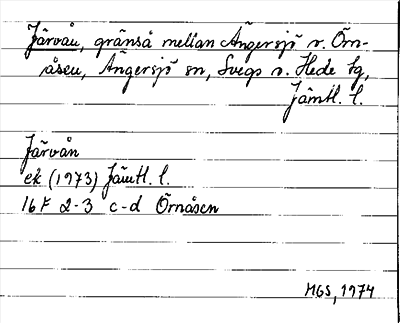 Järvån, gränså mellan Ängersjö o. Örn-
åsen, Ängersjö sn, Svegs o. Hede tg,
Jämtl. l.
Järvån
ek (1973) Jämtl. l.
16F 2-3 c-d Örnåsen
MGS, 1974